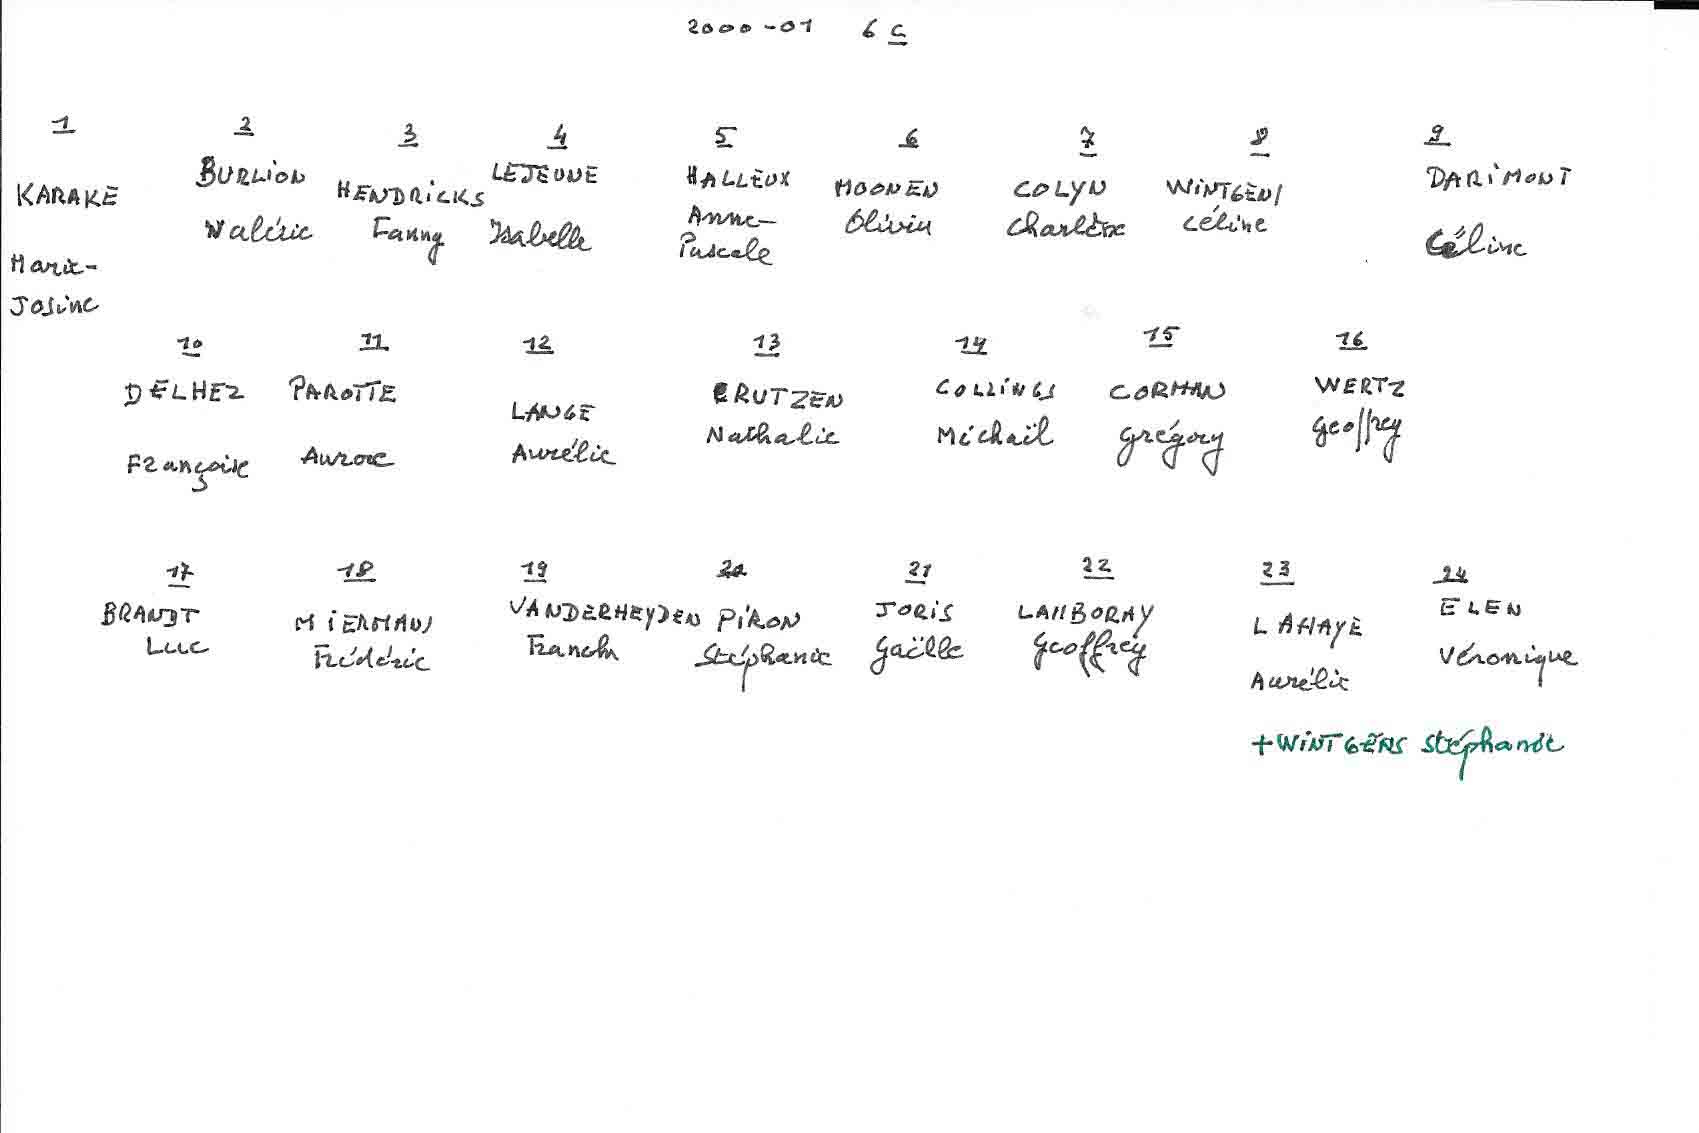 2000-01 6 C
1 2 3 4 5 6 7 8 9
KARAKE BURLION HENDRICKS LEJEUNE HALLEUX MOONEN COLYN WINTGENS DARIMONT
Marie- Valérie Fanny Isabelle Anne- Olivier Charlène Céline Céline
Josine Pascale
10 11 12 13 14 15 16
DELHEZ PAROTTE LANGE CRUTZEN COLLINGS CORMAN WERTZ
Françoise Aurore Aurélie Nathalie Michaël Grégory Geoffrey
17 18 19 20 21 22 23 24
BRANDT MIERMANS VANDERHEYDEN PIRON JORIS LAMBORAY LAHAYE ELEN
Luc Frédéric Stéphanie Gaëlle Geoffrey Aurélie Véronique
+WINTGENS Stéphanie